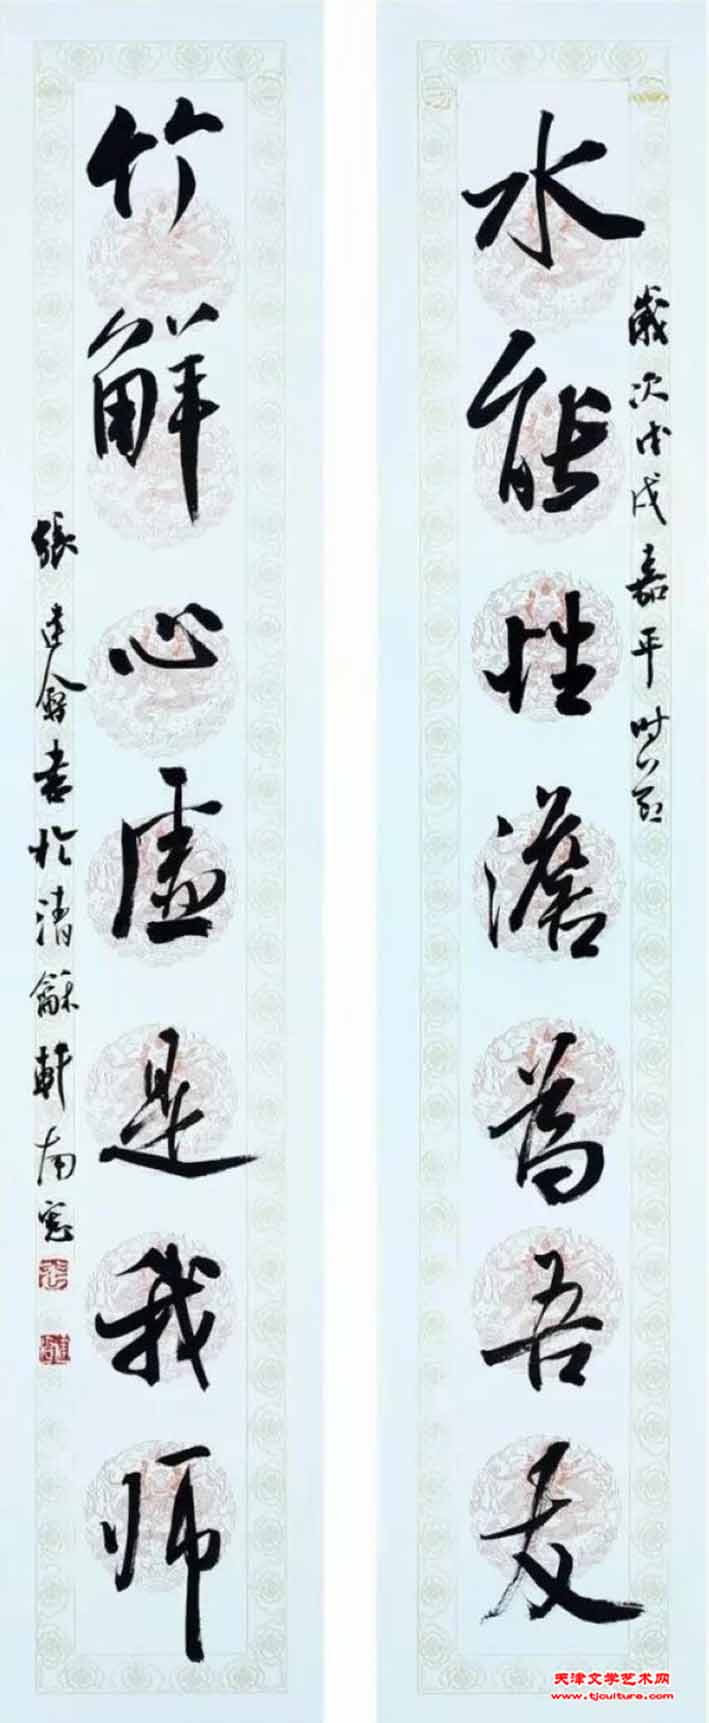 歲次戊戌嘉平时節
水能性澹為吾友
竹解心虛是我师
張建會書於清龢軒南窗
天津文学艺术网
www.tjculture.com